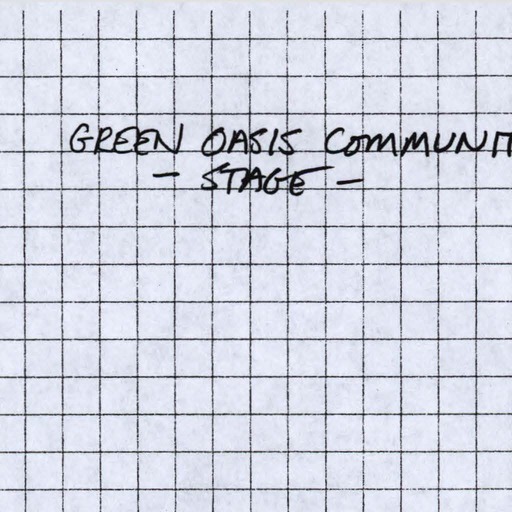 GREEN OASIS COMMUNIT
- STAGE -